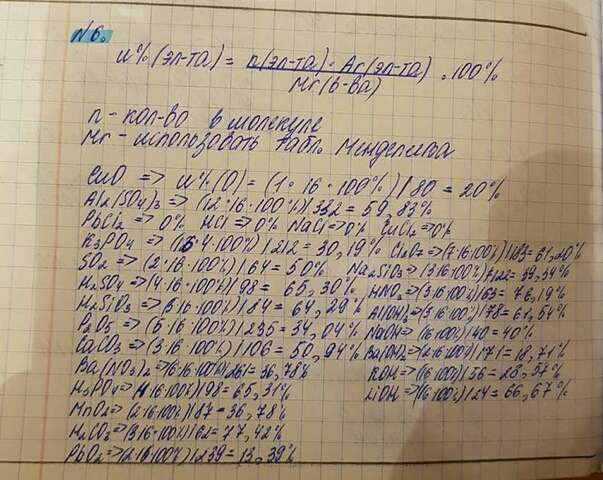 №6.
W%(эл-та) = n(эл-та) · Ar(эл-та) / Mr(в-ва) · 100%
n - кол-во в молекуле
Mr - использовать табл. Менделеева
CuO => W%(O) = (1·16·100%)/80 = 20%
Al2(SO4)3 => (12·16·100%)/332 = 59,83%
PbCl2 => 0% HCl => 0% NaCl => 0% CuCl2 => 0%
K3PO4 => (16·4·100%)/212 = 30,19% Cl2O7 => (7·16·100%)/183 = 61,20%
SO2 => (2·16·100%)/64 = 50% Na2SiO3 => (3·16·100%)/122 = 39,34%
H2SO4 => (4·16·100%)/98 = 65,30% HNO3 => (3·16·100%)/63 = 76,19%
H2SiO3 => (3·16·100%)/84 = 64,29% Al(OH)3 => (3·16·100%)/78 = 61,54%
P2O5 => (5·16·100%)/235 = 34,04% NaOH => (16·100%)/40 = 40%
CaCO3 => (3·16·100%)/106 = 50,94% Ba(OH)2 => (2·16·100%)/171 = 18,71%
Ba(NO3)2 => (6·16·100%)/261 = 36,78% KOH => (16·100%)/56 = 28,57%
H3PO4 => (4·16·100%)/98 = 65,31% LiOH => (16·100%)/24 = 66,67%
MnO2 => (2·16·100%)/87 = 36,78%
H2CO3 => (3·16·100%)/62 = 77,42%
PbO2 => (2·16·100%)/239 = 13,39%